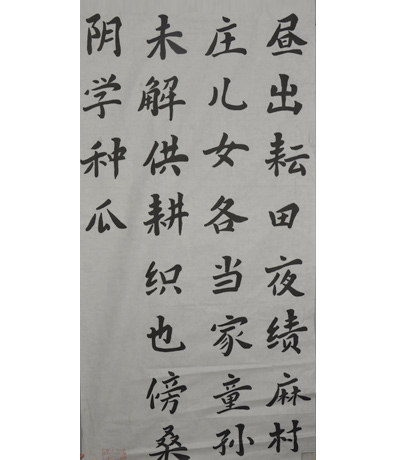 昼出耘田夜绩麻村
庄儿女各当家童孙
未解供耕织也傍桑
阴学种瓜